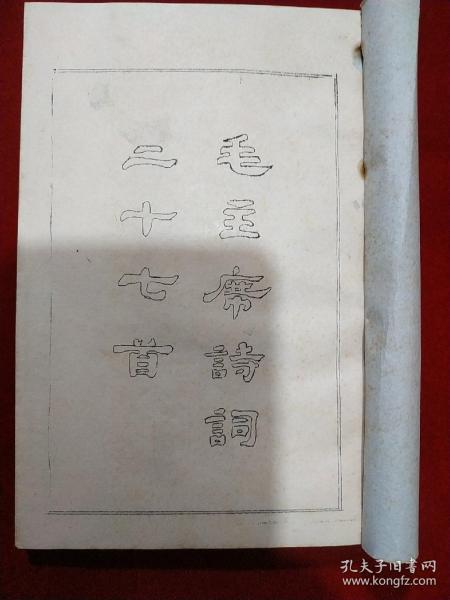 毛主席詩詞
二十七首
孔夫子旧书网
www.kongfz.com